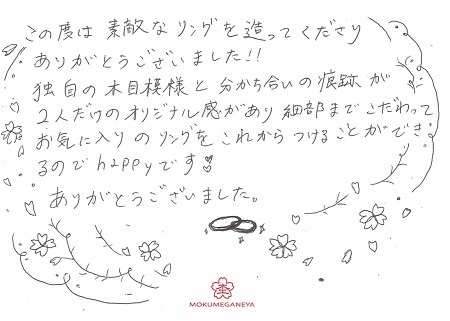 この度は 素敵な リングを 造ってくださり
ありがとうございました!!
独自の木目模様と 分かち合いの痕跡が
2人だけのオリジナル感があり 細部までこだわって
お気に入りのリングを これから つけることができ
るので happyです
ありがとうございました。
MOKUMEGANEYA